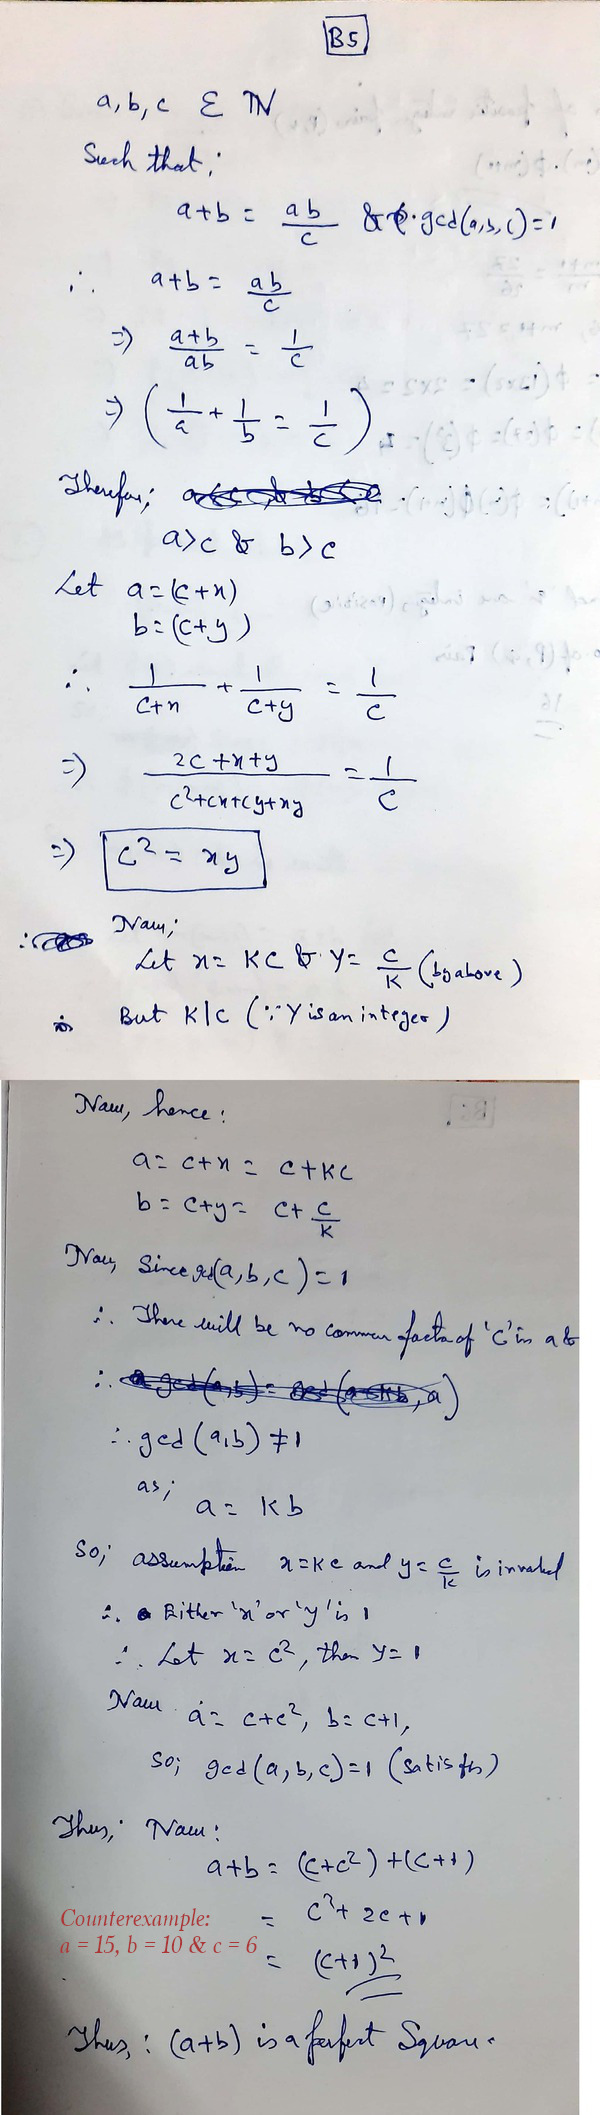 B5
a, b, c ∈ ℕ
Such that;
a+b = ab/c & gcd(a,b,c)=1
∴ a+b = ab/c
⇒ (a+b)/ab = 1/c
⇒ (1/a + 1/b = 1/c)
Therefore;
a>c & b>c
Let a=(c+x)
b=(c+y)
∴ 1/(c+x) + 1/(c+y) = 1/c
⇒ (2c+x+y)/(c²+cx+cy+xy) = 1/c
⇒ c² = xy
Now;
Let x= KC & y= c/K (by above)
But K|C (∵ Y is an integer)
Now, hence:
a= c+x = c+KC
b= c+y= c+ c/K
Now, Since gcd(a,b,c)=1
∴ There will be no common factor of 'C' in a &
∴ gcd(a,b) ≠ 1
as;
a = Kb
So; assumption x=KC and y= c/K is invalid
∴ Either 'x' or 'y' is 1
∴ Let x= c², then y=1
Now a= c+c², b= c+1,
So; gcd(a,b,c)=1 (satisfies)
Thus; Now:
a+b = (c+c²)+(c+1)
= c²+2c+1
Counterexample:
a = 15, b = 10 & c = 6
= (c+1)²
Thus,: (a+b) is a perfect Square.